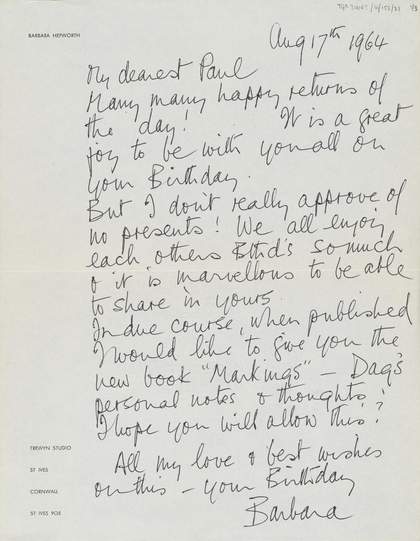 BARBARA HEPWORTH
Aug 17th 1964
My dearest Paul
Many many happy returns of
the day! It is a great
joy to be with you all on
your Birthday.
But I don't really approve of
no presents! We all enjoy
each others Bthd's so much
& it is marvellous to be able
to share in yours
In due course, when published
I would like to give you the
new book "Markings" – Dag's
personal notes & thoughts.
I hope you will allow this?
All my love & best wishes
on this – your Birthday
Barbara
TREWYN STUDIO
ST IVES
CORNWALL
ST IVES